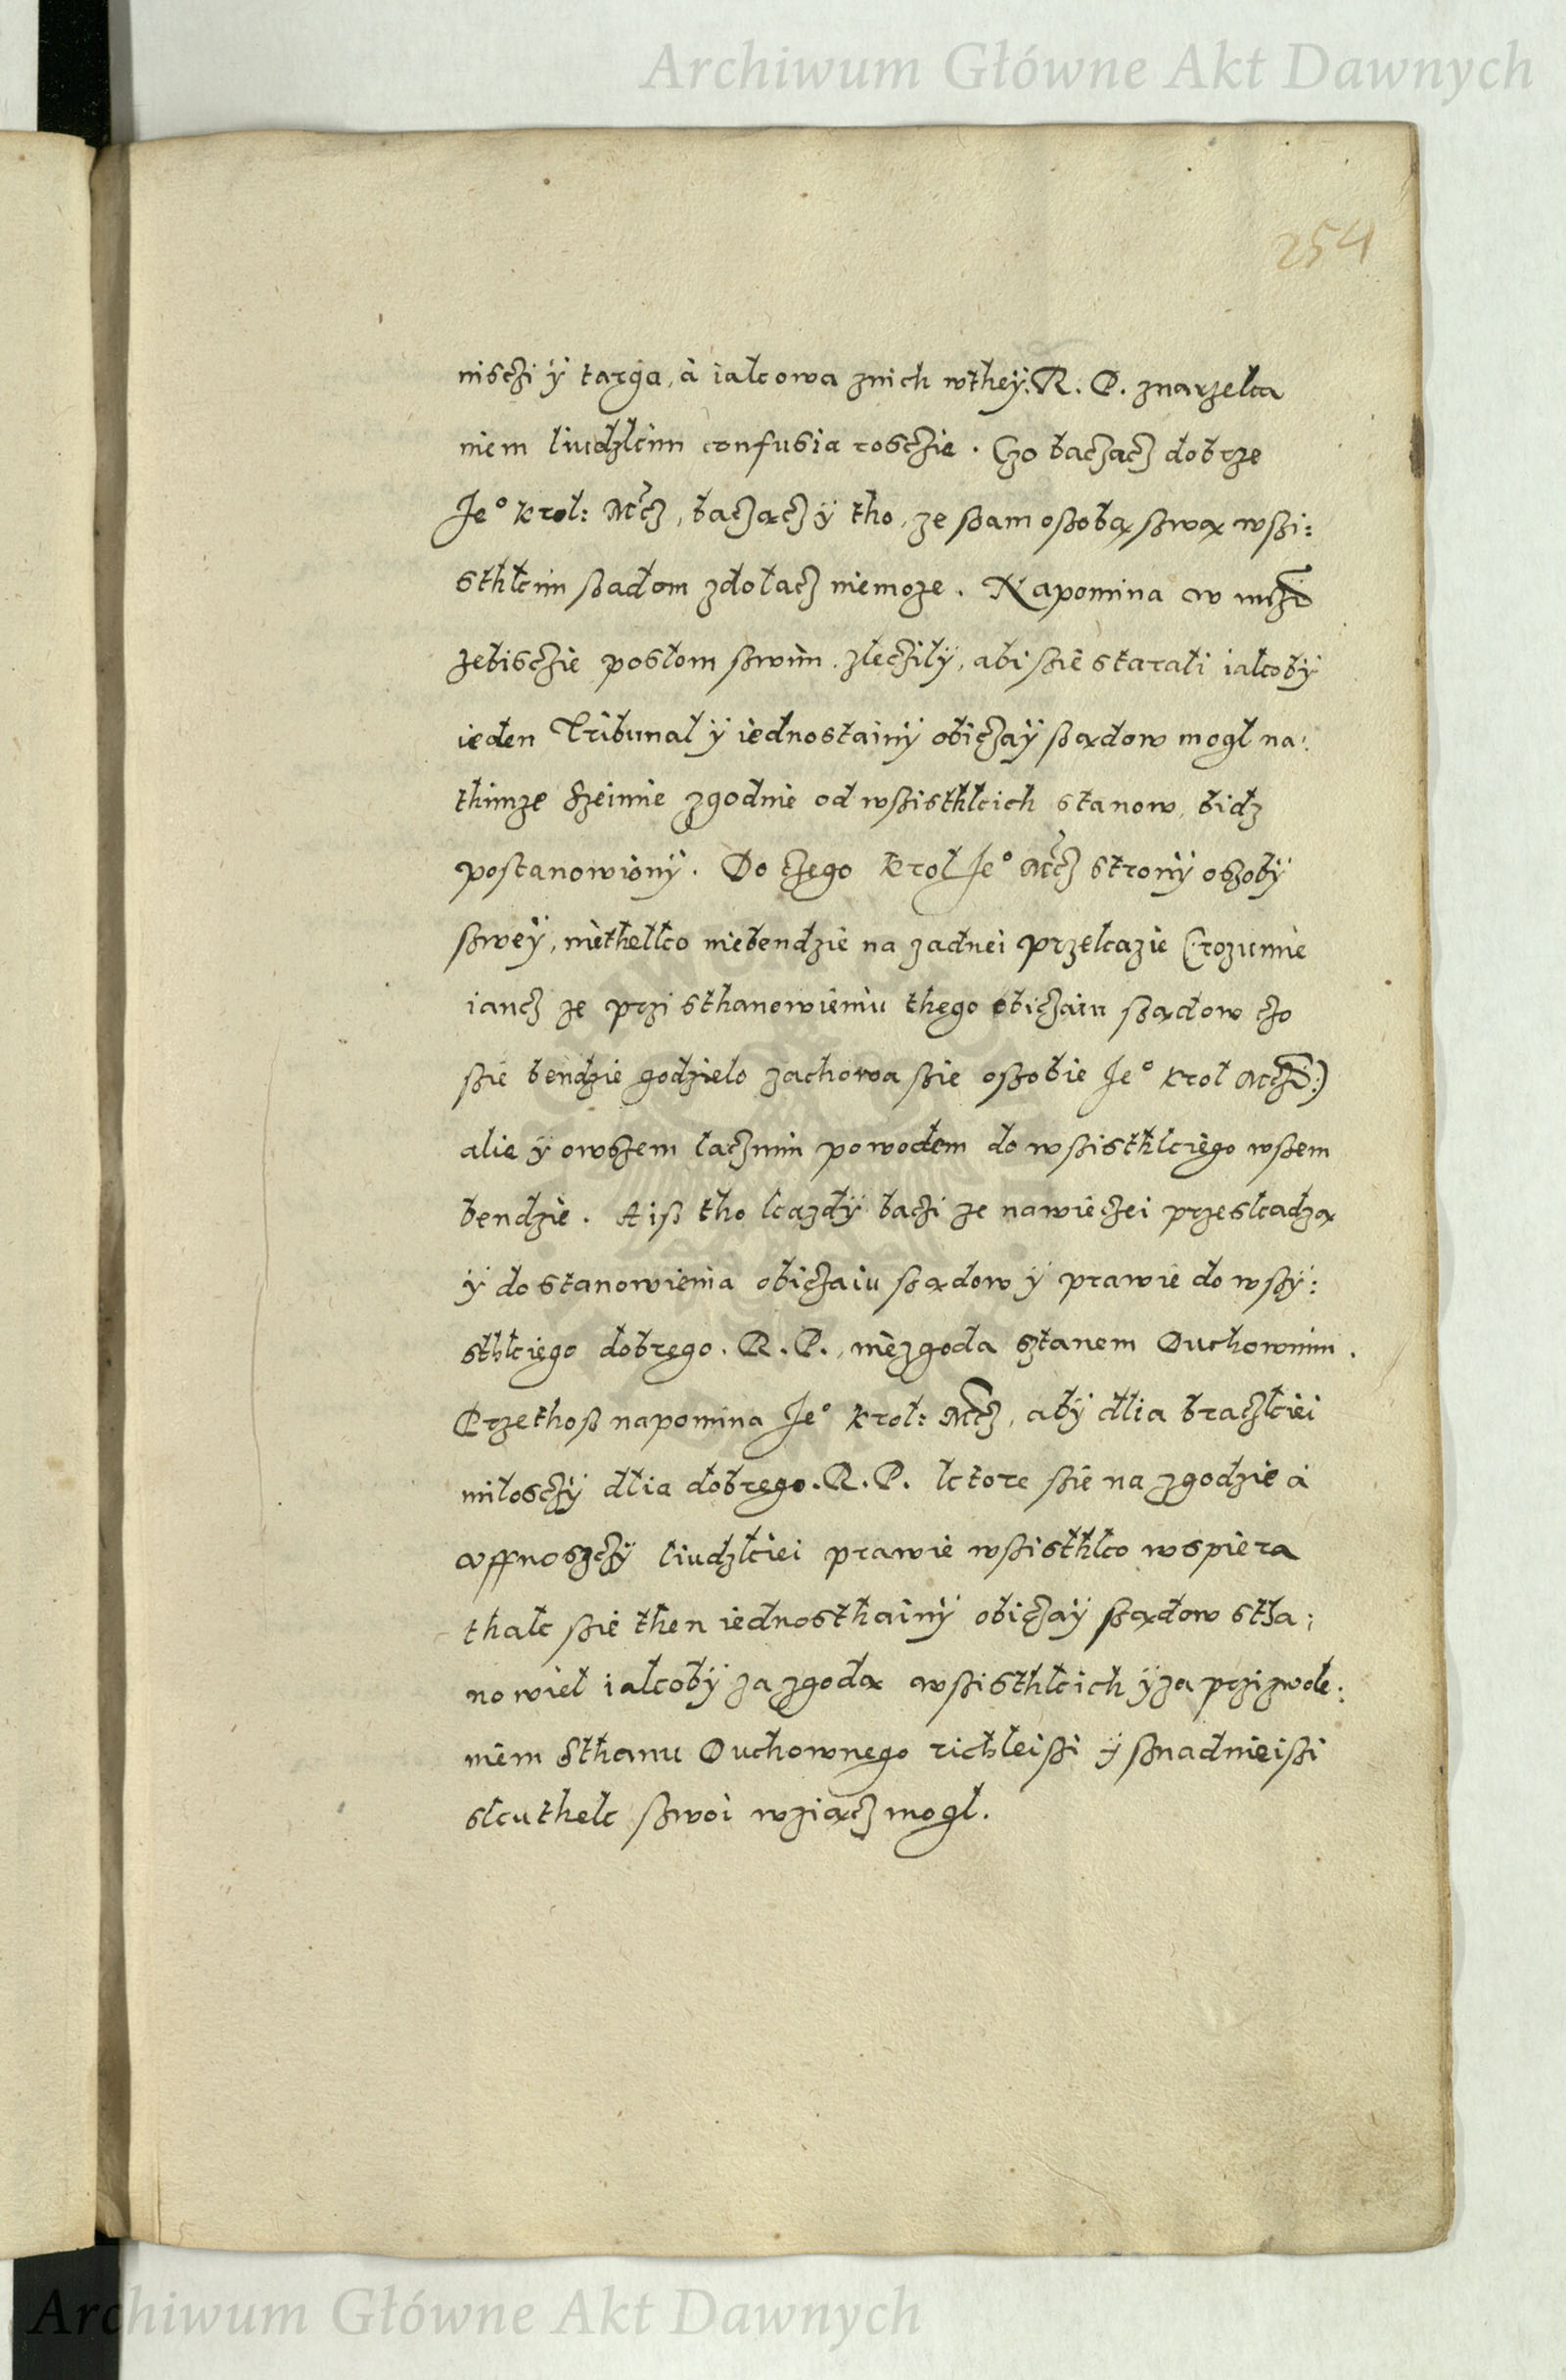 Archiwum Główne Akt Dawnych
254
nisczi ÿ targa, a iakowa znich wtheÿ. R. P. znarzeka
niem liudzkim confusia rosczie. Czo baczacz dobrze
Je° Krol: Mcz, baczączÿ tho, ze ßam oßobą ßwą wßi:
sthkim ßadom zdolacz niemoze. Napomina w mczi
zebisczie poslom ßwim zleczilÿ, abi ßie starali iakobÿ
ieden Tribunal ÿ iednostainÿ obiczaÿ ßądow mogl na:
thimze Szeimie zgodnie od wßisthkich stanow, bidz
postanowionÿ. Do czego Krol Je° Mcz stronÿ oszobÿ
ßweÿ, niethelko niebendzie na zadnei przekazie (rozumie
iancz ze przi sthanowieniu thego obiczaiu ßądow czo
ßie bendzie godzielo zachowa ßie oßobie Je° Krol Mczi:)
alie ÿ owszem lacznim powodem do wßisthkiego wßem
bendzie. A iß tho kazdÿ baczi ze nawieczei przeskadzą
ÿ do stanowienia obiczaiu ßądow ÿ prawie do wßÿ:
sthkiego dobrego. R. P., niezgoda sztanem Duchownim.
Przethoß napomina Je° Krol: Mcz, abÿ dlia braczkiei
miłosczÿ dlia dobrego. R. P. ktore ßie na zgodzie a
wffnoszczÿ liudzkiei prawie wßisthko wspiera
thak ßie then iednosthainÿ obiczaÿ ßądow stha:
nowiel iakobÿ za zgodą wßisthkich ÿ za przizwole:
niem Sthanu Duchownego richleißi ÿ ßnadnieißi
skuthek ßwoi wziącz mogl.
Archiwum Główne Akt Dawnych